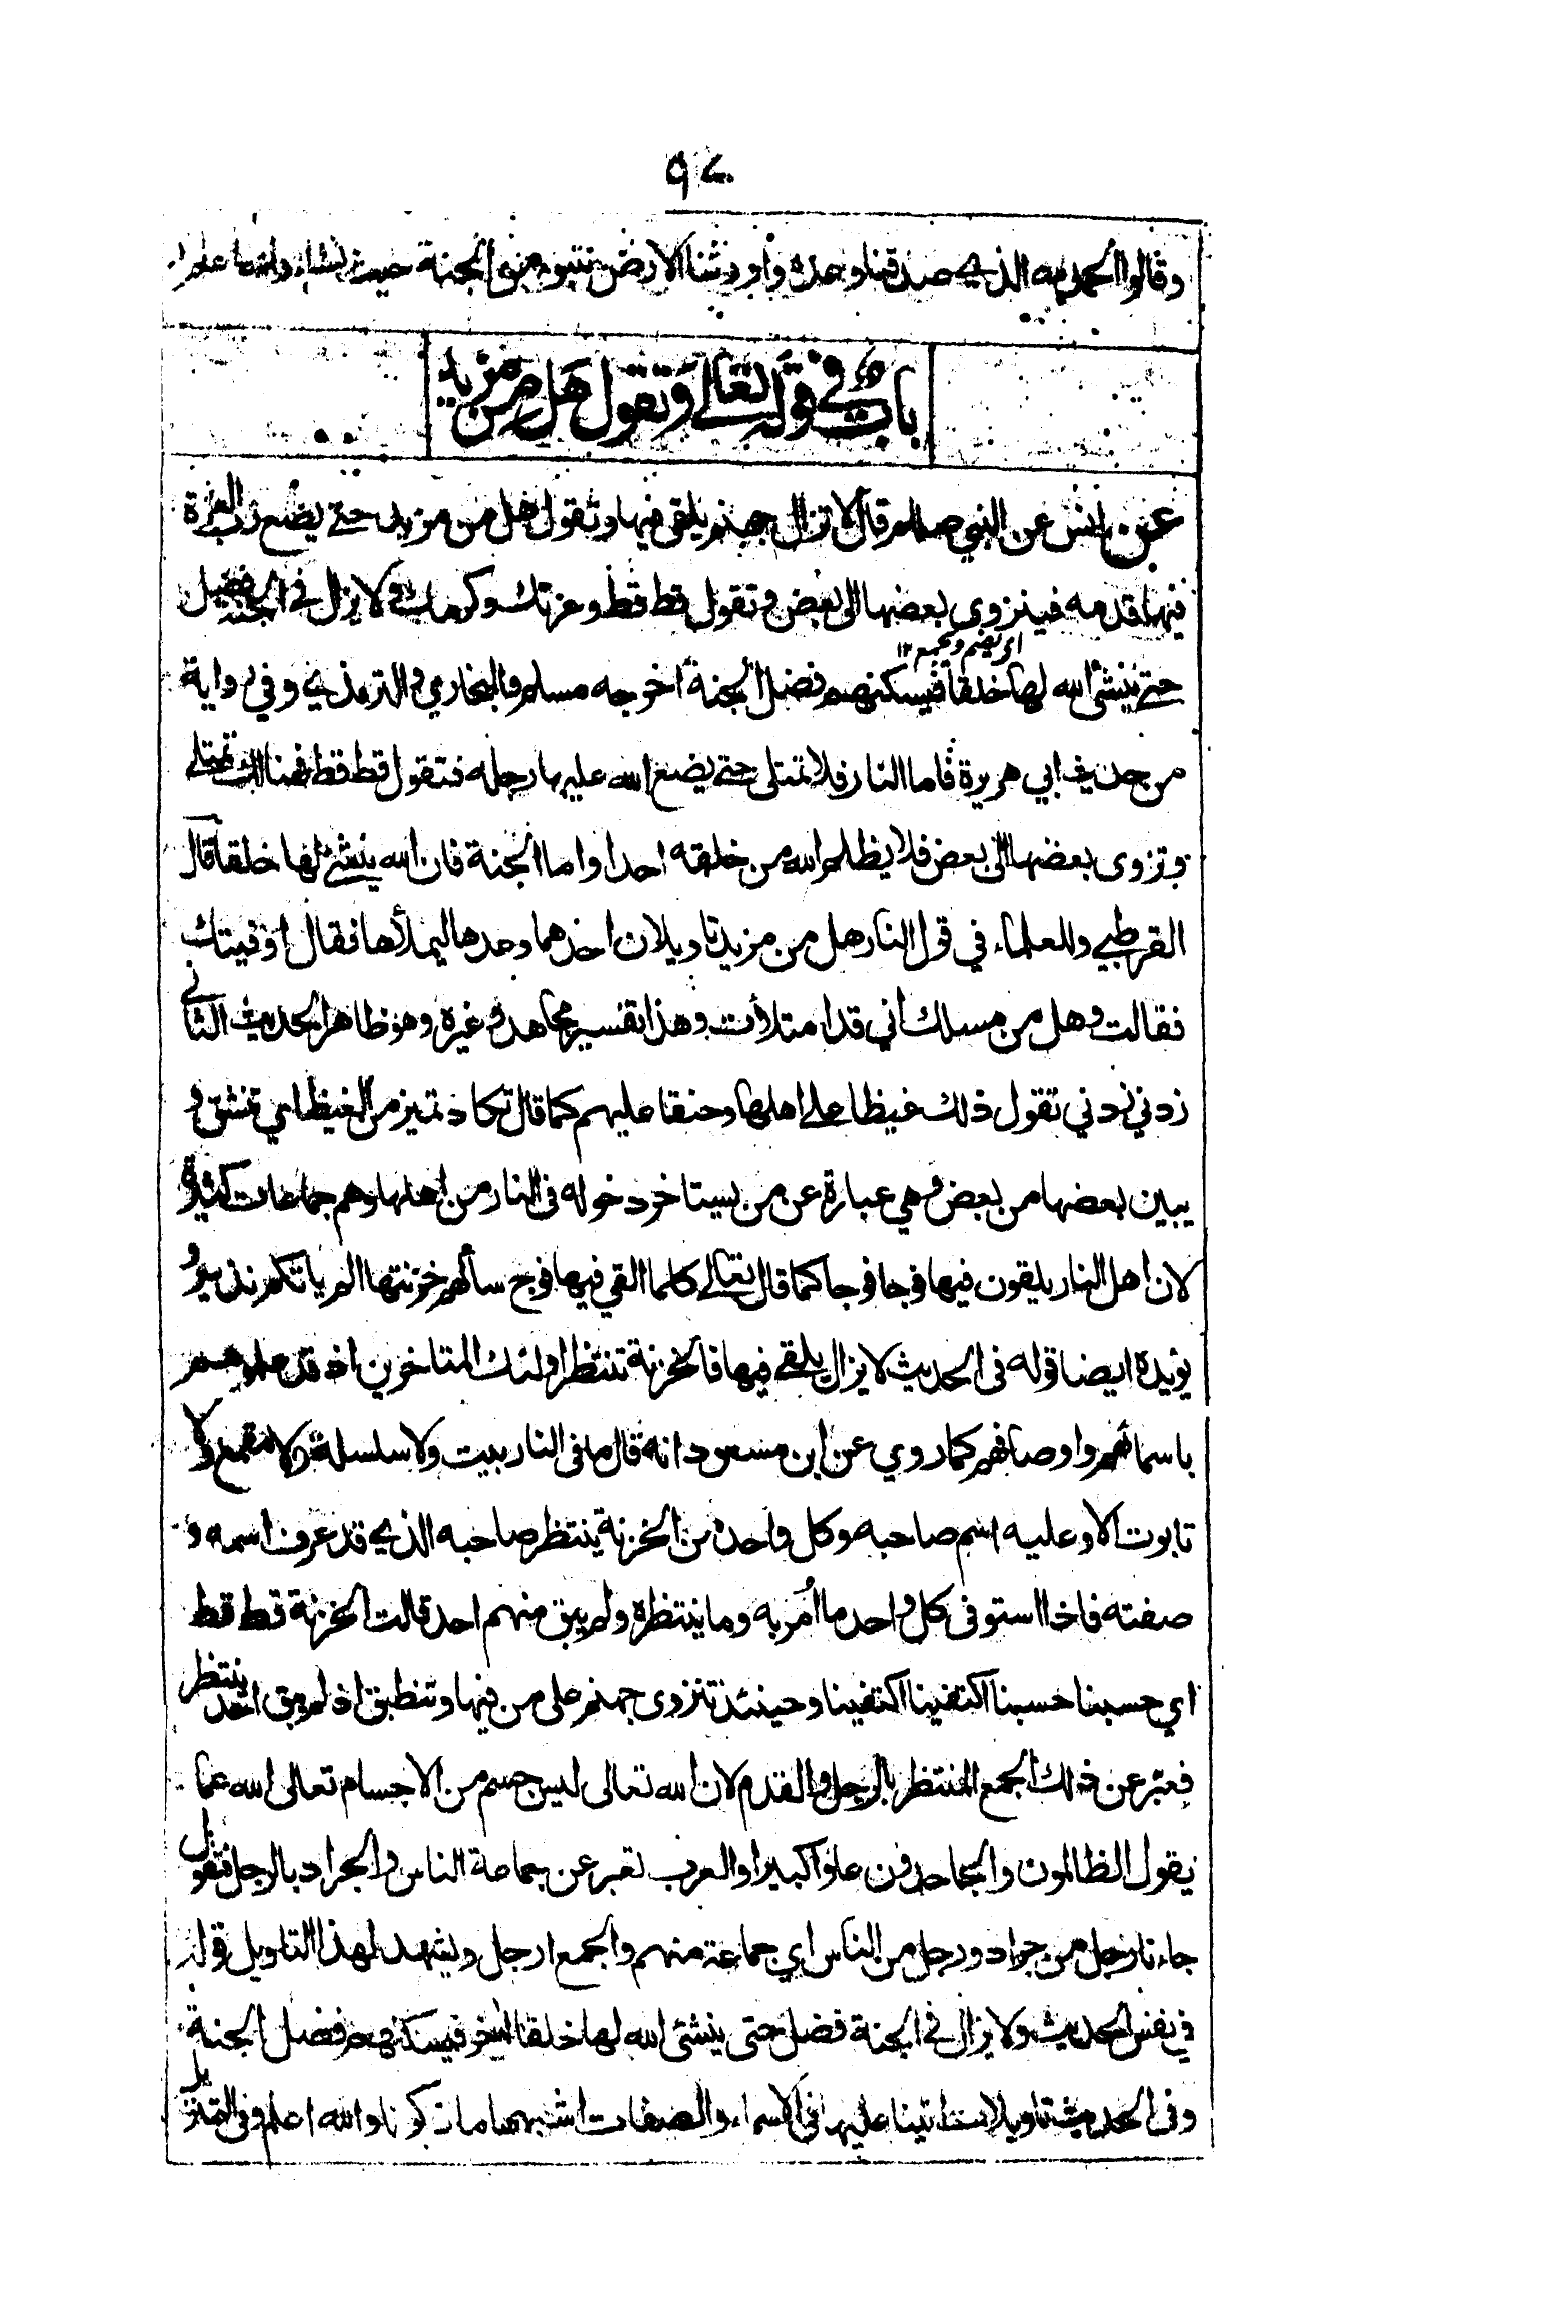 ٩٤
وقالوا الحمد لله الذي صدقنا وعده واورثنا الارض نتبوء من الجنة حيث نشاء
باب في قوله تعالى وتقول هل من مزيد
عن انس عن النبي صللم قال لا تزال جهنم يلقى فيها وتقول هل من مزيد حتى يضع رب العزة
فيها قدمه فينزوي بعضها الى بعض وتقول قط قط وعزتك وكرمك ولا يزال في الجنة فضل
اي يضم ويجمع ١٢
حتى ينشئ الله لها خلقا فيسكنهم فضل الجنة اخرجه مسلم والبخاري والترمذي وفي رواية
من حديث ابي هريرة فاما النار فلا تمتلى حتى يضع الله عليها رجله فتقول قط قط فهنالك تمتلي
وتزوى بعضها الى بعض فلا يظلم الله من خلقه احدا واما الجنة فان الله ينشئ لها خلقا قال
القرطبي وللعلماء في قول النار هل من مزيد تاويلان احدهما وعدها ليملأها فقال اوفيتك
فقالت وهل من مسلك اني قد امتلأت وهذا تفسير مجاهد وغيره وهو ظاهر الحديث الثاني
زدني زدني تقول ذلك غيظا على اهلها وحنقا عليهم كما قال تكاد تميز من الغيظ اي تنشق و
يبين بعضها من بعض وهي عبارة عن من يستاخر دخوله فى النار من اهلها وهم جماعات كثيرة
لان اهل النار يلقون فيها فوجا فوجا كما قال تعالى كلما القي فيها فوج سألهم خزنتها الم ياتكم نذير و
يؤيده ايضا قوله فى الحديث لا يزال يلقى فيها فالخزنة تنتظر اولئك المتاخرين اذ قد علموهم
باسمائهم واوصافهم كما روي عن ابن مسعود انه قال ما فى النار بيت ولا سلسلة ولا مقمع ولا
تابوت الا وعليه اسم صاحبه وكل واحد من الخزنة ينتظر صاحبه الذي قد عرف اسمه و
صفته فاذا استوفى كل واحد ما امر به وما ينتظره ولم يبق منهم احد قالت الخزنة قط قط
اي حسبنا حسبنا اكتفينا اكتفينا وحينئذ تنزوى جهنم على من فيها وتنطبق اذ لم يبق احد ينتظر
فعبر عن ذلك الجمع المنتظر بالرجل والقدم لان الله تعالى ليس جسم من الاجسام تعالى الله عما
يقول الظالمون والجاحدون علوا كبيرا والعرب تعبر عن جماعة الناس والجراد بالرجل فتقول
جاءنا رجل من جراد ورجل من الناس اي جماعة منهم والجمع ارجل ويشهد لهذا التاويل قوله
في نفس الحديث ولا يزال في الجنة فضل حتى ينشئ الله لها خلقا اخر فيسكنهم فضل الجنة
وفى الحديث تاويلات اتينا عليها في الاسماء والصفات اشبهها ما ذكرنا والله اعلم وفى التنزيل